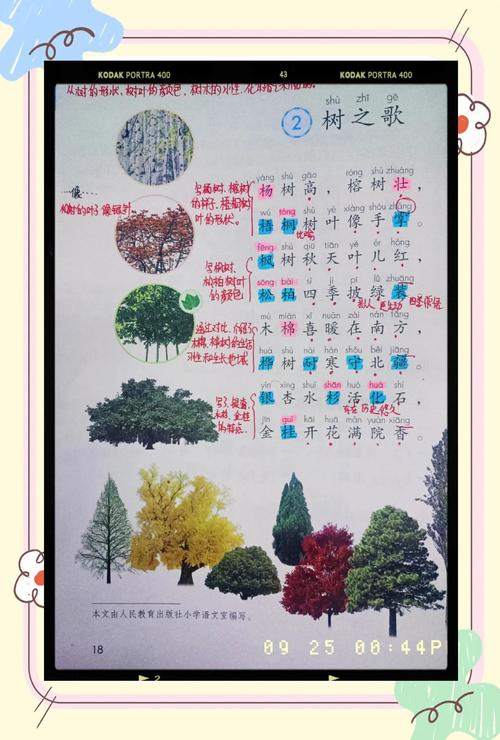 KODAK PORTRA 400 43 KODAK PORTRA 400
从树的形状、树叶的颜色、树木的习性、
shù zhī gē
2 树之歌
yáng shù gāo róng shù zhuàng
杨树高，榕树壮，
写杨树、榕树
的样子、梧桐树
叶的形状。
wú tóng shù yè xiàng shǒu zhǎng
梧桐树叶像手掌。
比喻
…像…
fēng shù qiū tiān yè ér hóng
枫树秋天叶儿红，
写枫树、
松柏树叶
的颜色
sōng bǎi sì jì pī lǜ zhuāng
松柏四季披绿装。
拟人
mù mián xǐ nuǎn zài nán fāng
木棉喜暖在南方，
通过对比，介绍了
木棉、桦树的生活
习性和生长地域。
huà shù nài hán shǒu běi jiāng
桦树耐寒守北疆。
yín xìng shuǐ shān huó huà shí
银杏水杉活化石，
写了银杏、
水杉、金桂
的特点。
存在历史悠久
jīn guì kāi huā mǎn yuàn xiāng
金桂开花满院香。
本文由人民教育出版社小学语文室编写。
18
09 25 00:44P